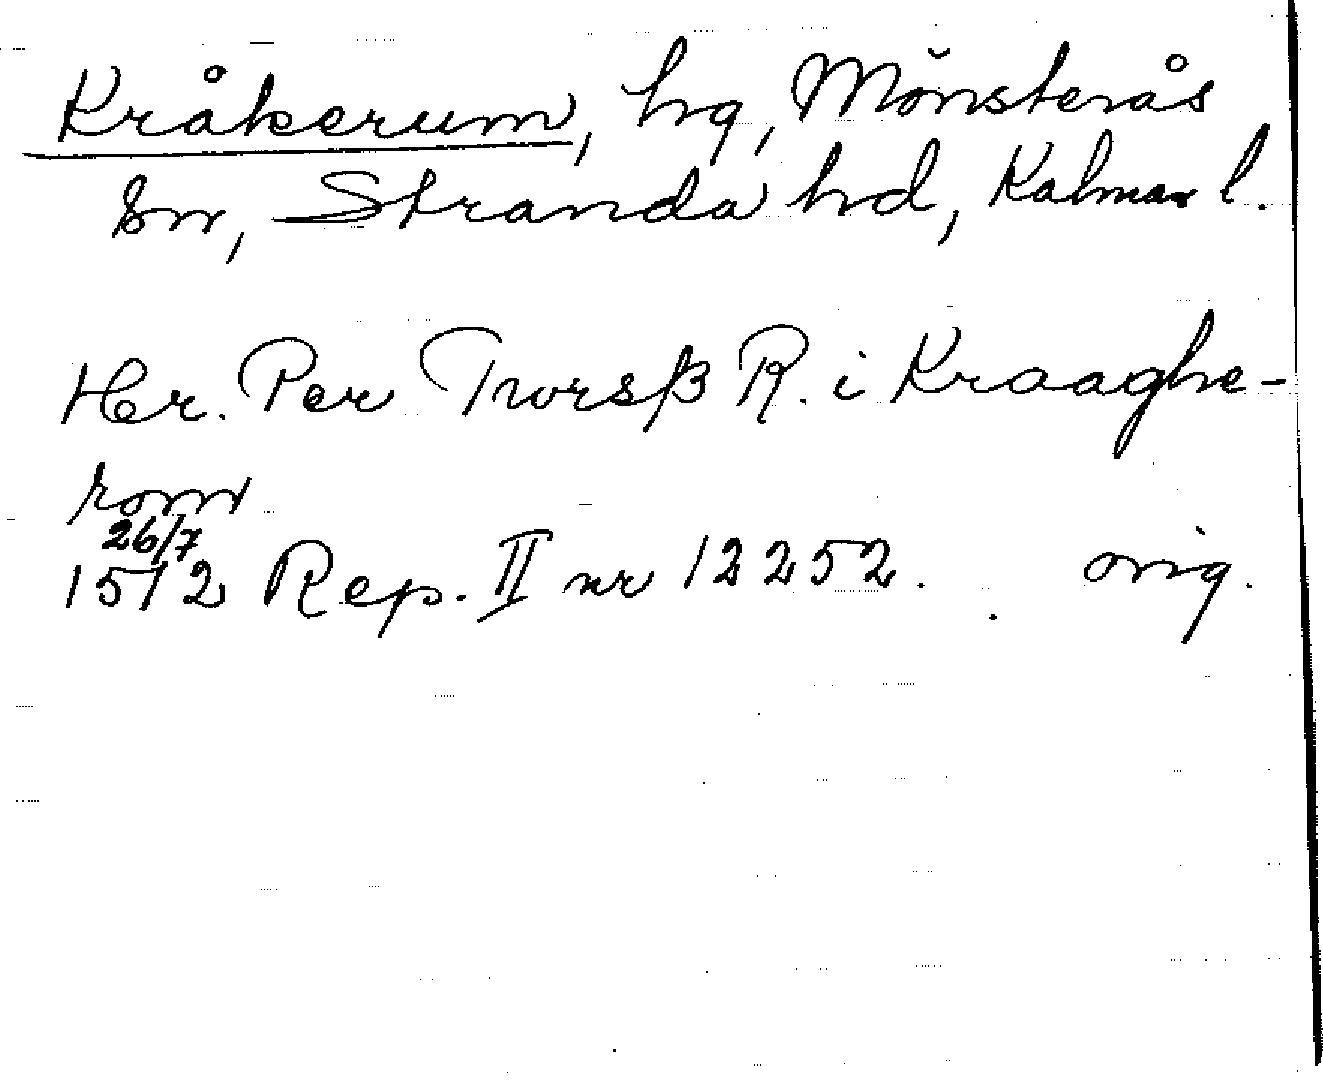 Kråkerum, hg, Mönsterås
sn, Stranda hd, Kalmar l.
Her. Per Twrsß R. i Kraaghe-
rom
26/7
1512 Rep. II nr 12252. orig.